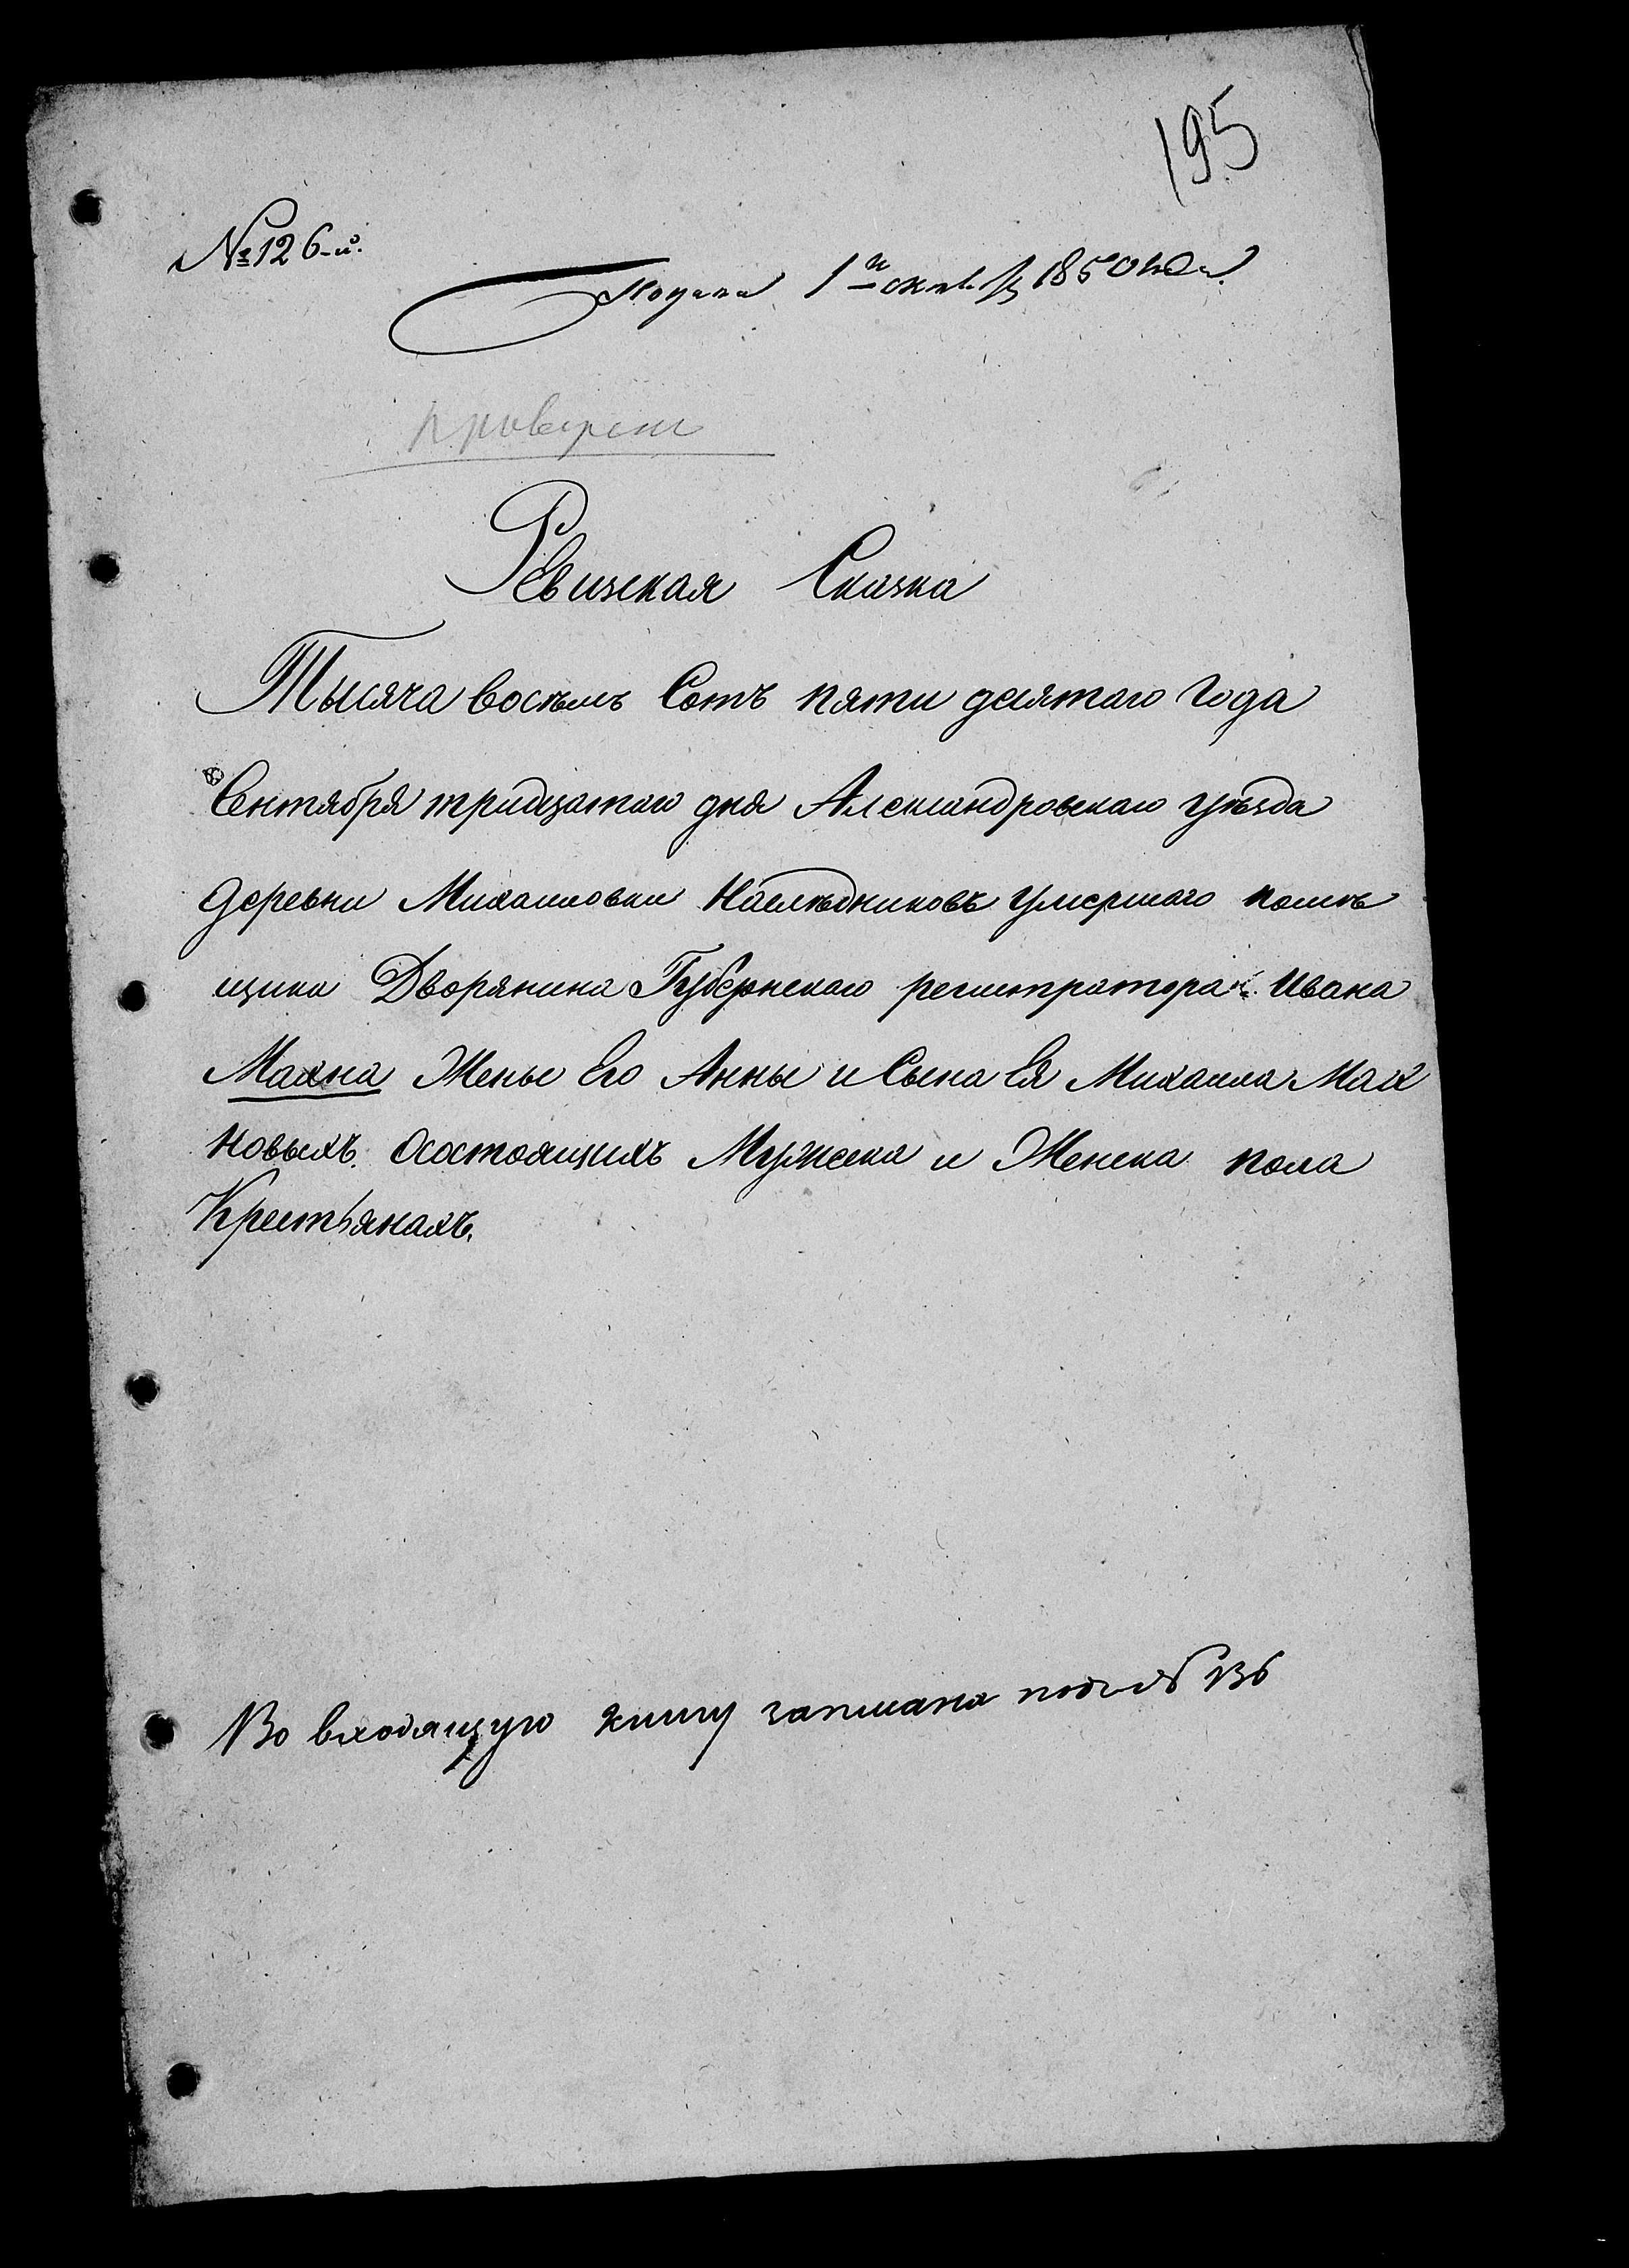 195
№ 126-й.
Подана 1го октября 1850 года
проверена
Ревизская Сказка
Тысяча восемь Сотъ пяти десятаго года
Сентября тридцатаго дня Александровскаго уѣзда
деревни Михаиловки Наслѣдниковъ умершаго помѣ
щика Дворянина Губернскаго регистратора Ивана
Махна Жены Его Анны и Сына Ея Михаила Мах
новыхъ. Осостоящихъ Мужеска и Женска пола
Крестьянахъ.
Во входящую книгу записана подъ № 136